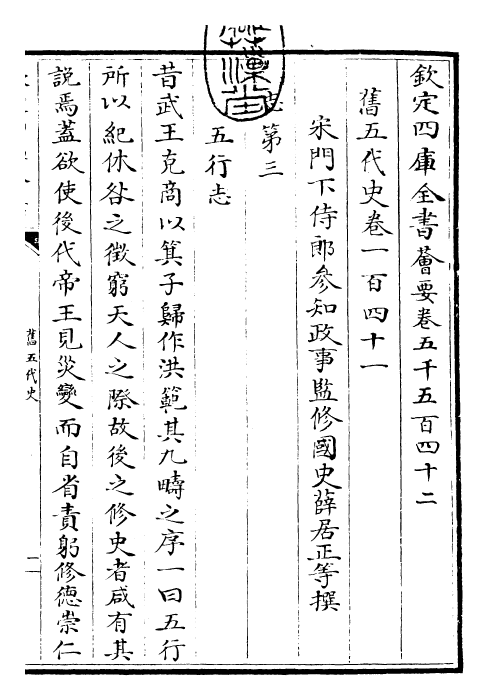 欽定四庫全書薈要卷五千五百四十二
舊五代史卷一百四十一
宋門下侍郎參知政事監修國史薛居正等撰
志第三
五行志
昔武王克商以箕子歸作洪範其九疇之序一曰五行
所以紀休咎之徵窮天人之際故後之修史者咸有其
說焉蓋欲使後代帝王見災變而自省責躬修德崇仁
舊五代史
一